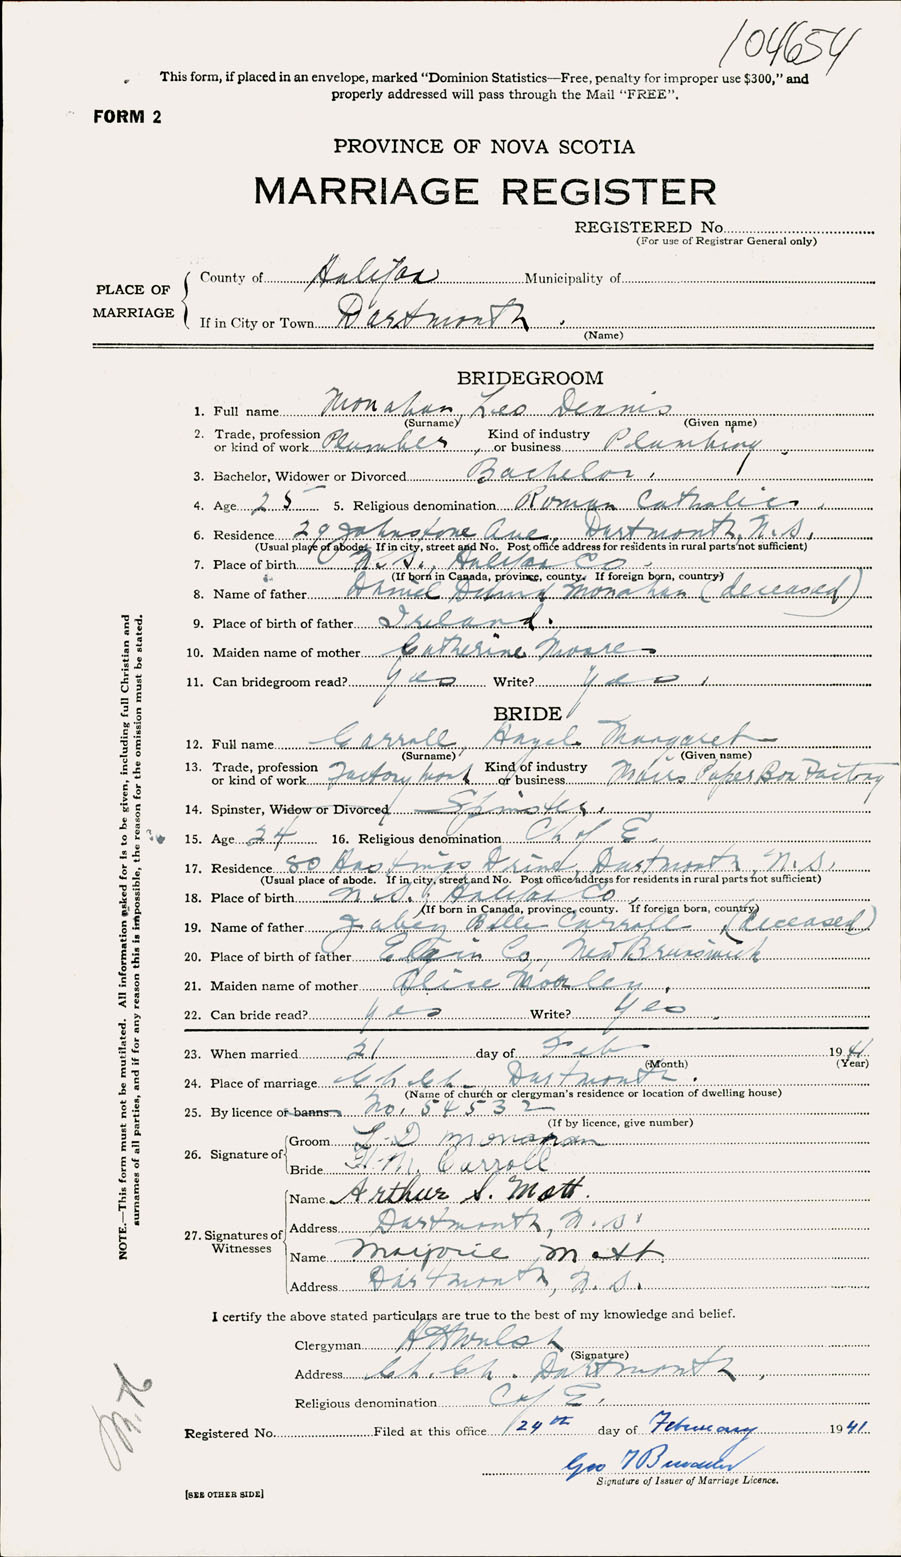 104654
This form, if placed in an envelope, marked “Dominion Statistics—Free, penalty for improper use $300,” and
properly addressed will pass through the Mail “FREE”.
FORM 2
PROVINCE OF NOVA SCOTIA
MARRIAGE REGISTER
REGISTERED No.
(For use of Registrar General only)
PLACE OF MARRIAGE
County of Halifax Municipality of
If in City or Town Dartmouth.
(Name)
BRIDEGROOM
1. Full name Monahan, Leo Dennis
(Surname) (Given name)
2. Trade, profession or kind of work Plumber, Kind of industry or business Plumbing.
3. Bachelor, Widower or Divorced Bachelor.
4. Age 25 5. Religious denomination Roman Catholic.
6. Residence 29 Johnstone Ave., Dartmouth, N.S.
(Usual place of abode. If in city, street and No. Post office address for residents in rural parts not sufficient)
7. Place of birth N.S., Halifax Co.
(If born in Canada, province, county. If foreign born, country)
8. Name of father Daniel Monahan (deceased)
9. Place of birth of father Ireland.
10. Maiden name of mother Catherine Moore
11. Can bridegroom read? Yes Write? Yes.
BRIDE
12. Full name Carroll, Hazel Margaret
(Surname) (Given name)
13. Trade, profession or kind of work Factory work Kind of industry or business Moirs Paper Box Factory
14. Spinster, Widow or Divorced Spinster.
15. Age 24 16. Religious denomination Ch of E.
17. Residence 80 Hastings Drive, Dartmouth, N.S.
(Usual place of abode. If in city, street and No. Post office address for residents in rural parts not sufficient)
18. Place of birth N.S., Halifax Co.
(If born in Canada, province, county. If foreign born, country)
19. Name of father Carroll (deceased)
20. Place of birth of father Elgin Co., New Brunswick
21. Maiden name of mother Alice
22. Can bride read? Yes Write? Yes.
23. When married 21 day of Feb 1941
(Month) (Year)
24. Place of marriage Ch. Ch. Dartmouth.
(Name of church or clergyman's residence or location of dwelling house)
25. By licence or banns No. 54532
(If by licence, give number)
26. Signature of
Groom L. D. Monahan
Bride H. M. Carroll
27. Signatures of Witnesses
Name Arthur S. Mott.
Address Dartmouth, N.S.
Name Marjorie Mott
Address Dartmouth, N.S.
I certify the above stated particulars are true to the best of my knowledge and belief.
Clergyman
(Signature)
Address Ch. Ch. Dartmouth,
Religious denomination C of E.
Registered No. Filed at this office 24th day of February 1941
Geo
Signature of Issuer of Marriage Licence.
[SEE OTHER SIDE]
NOTE.—This form must not be mutilated. All information asked for is to be given, including full Christian and
surnames of all parties, and if for any reason this is impossible, the reason for the omission must be stated.